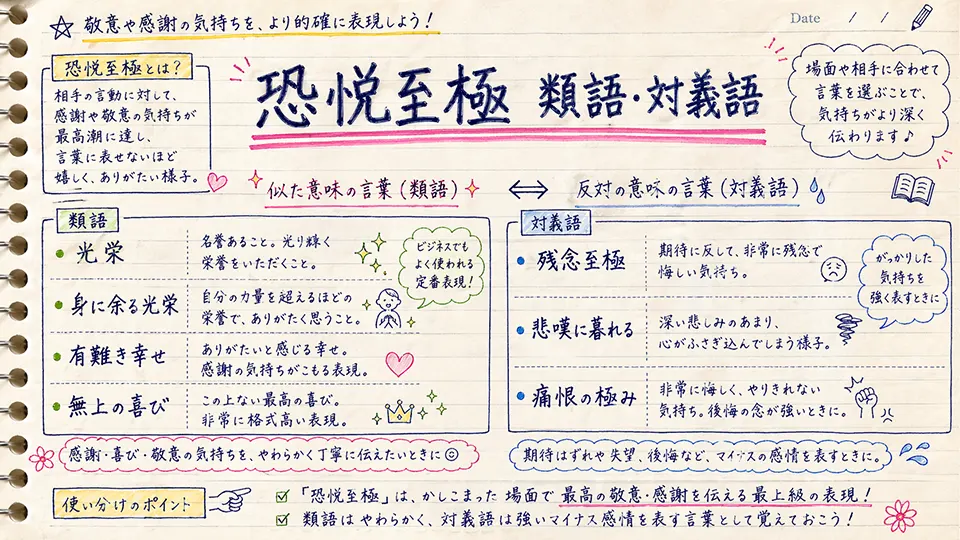 ☆ 敬意や感謝の気持ちを、より的確に表現しよう！
Date / /
恐悦至極とは？
相手の言動に対して、
感謝や敬意の気持ちが
最高潮に達し、
言葉に表せないほど
嬉しく、ありがたい様子。
恐悦至極 類語・対義語
場面や相手に合わせて
言葉を選ぶことで、
気持ちがより深く
伝わります♪
似た意味の言葉（類語）
⇔
反対の意味の言葉（対義語）
類語
・光栄
名誉あること。光り輝く
栄誉をいただくこと。
ビジネスでも
よく使われる
定番表現！
・身に余る光栄
自分の力量を超えるほどの
栄誉で、ありがたく思うこと。
・有難き幸せ
ありがたいと感じる幸せ。
感謝の気持ちがこもる表現。
・無上の喜び
この上ない最高の喜び。
非常に格式高い表現。
対義語
・残念至極
期待に反して、非常に残念で
悔しい気持ち。
がっかりした
気持ちを
強く表すときに
・悲嘆に暮れる
深い悲しみのあまり、
心がふさぎ込んでしまう様子。
・痛恨の極み
非常に悔しく、やりきれない
気持ち。後悔の念が強いときに。
感謝・喜び・敬意の気持ちを、やわらかく丁寧に伝えたいときに☺
期待はずれや失望、後悔など、マイナスの感情を表すときに。
使い分けのポイント
☑ 「恐悦至極」は、かしこまった場面で最高の敬意・感謝を伝える最上級の表現！
☑ 類語はやわらかく、対義語は強いマイナス感情を表す言葉として覚えておこう！